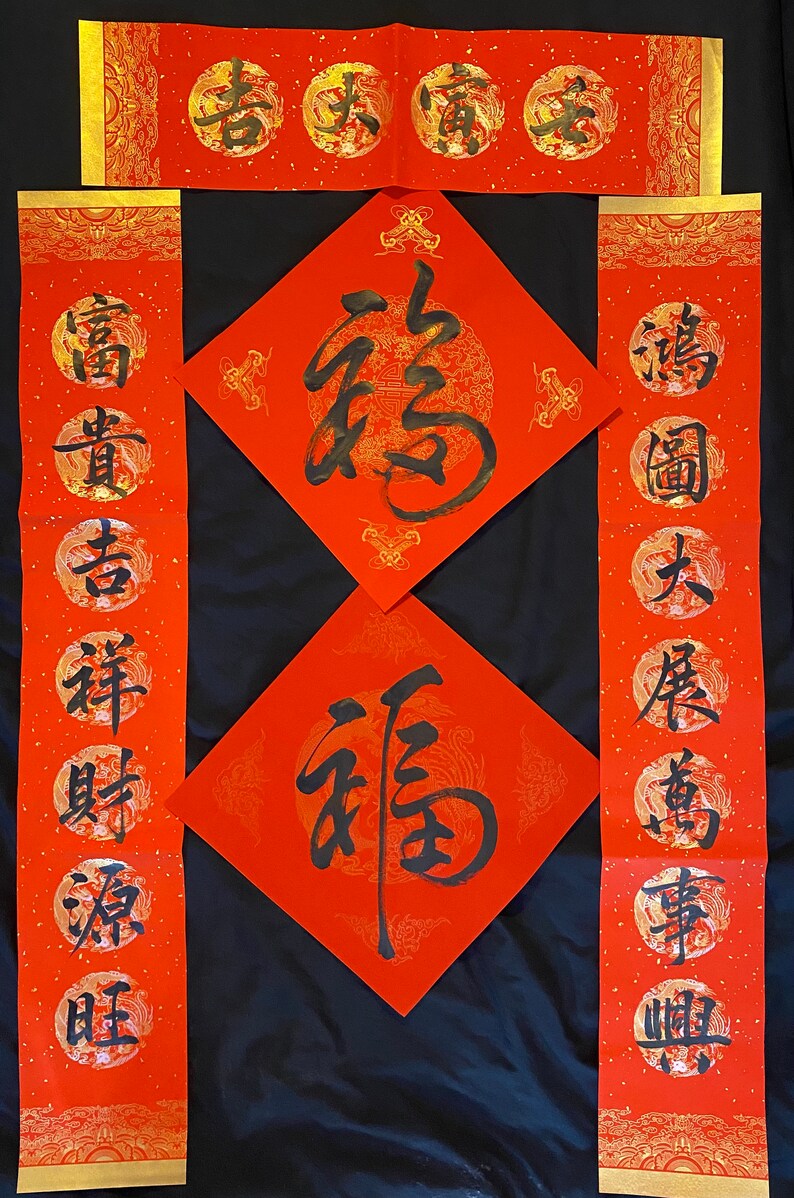 壬寅大吉
鴻圖大展萬事興
富貴吉祥財源旺
福
福